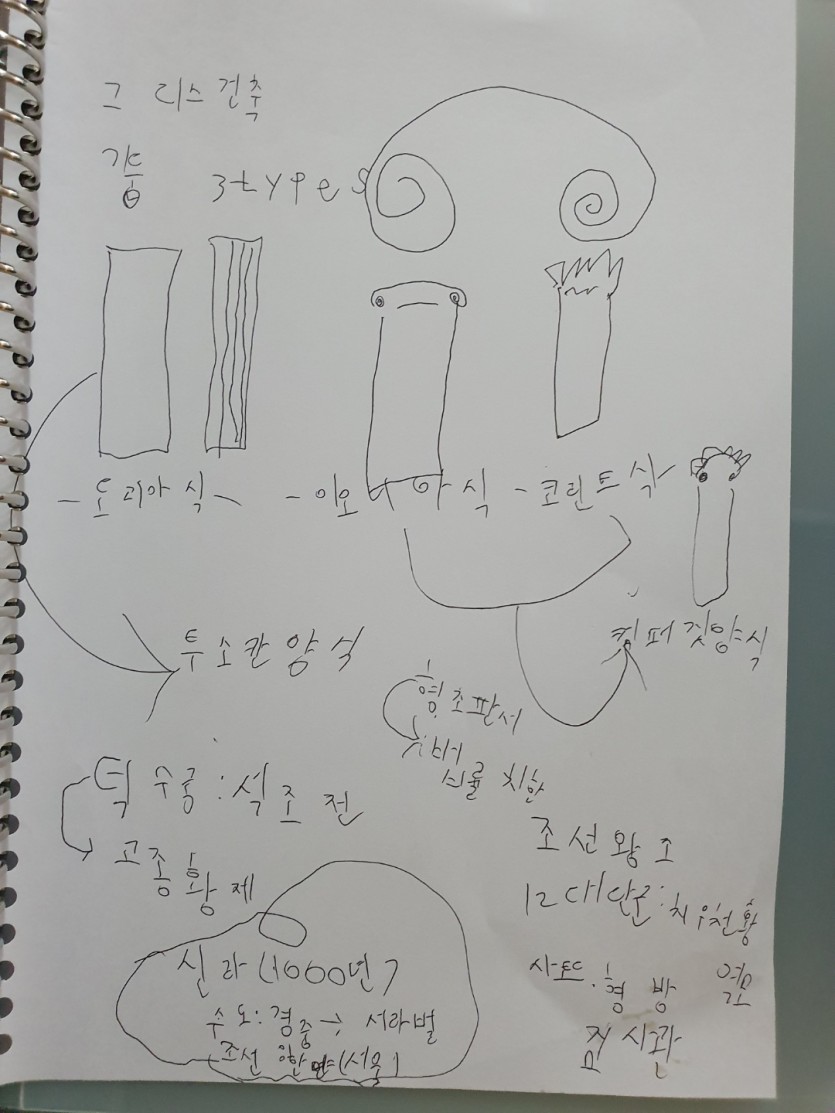 그 리스건축
기둥 3types
- 도리아식 - 이오니아식 - 코린트식
투스칸양식
컴퍼짓양식
형조판서
덕수궁 : 석조전
고종황제
조선왕조
12대단군: 치우천황
신라(1000년)
수도: 경중 → 서라벌
조선 한양(서울)
사또. 형방